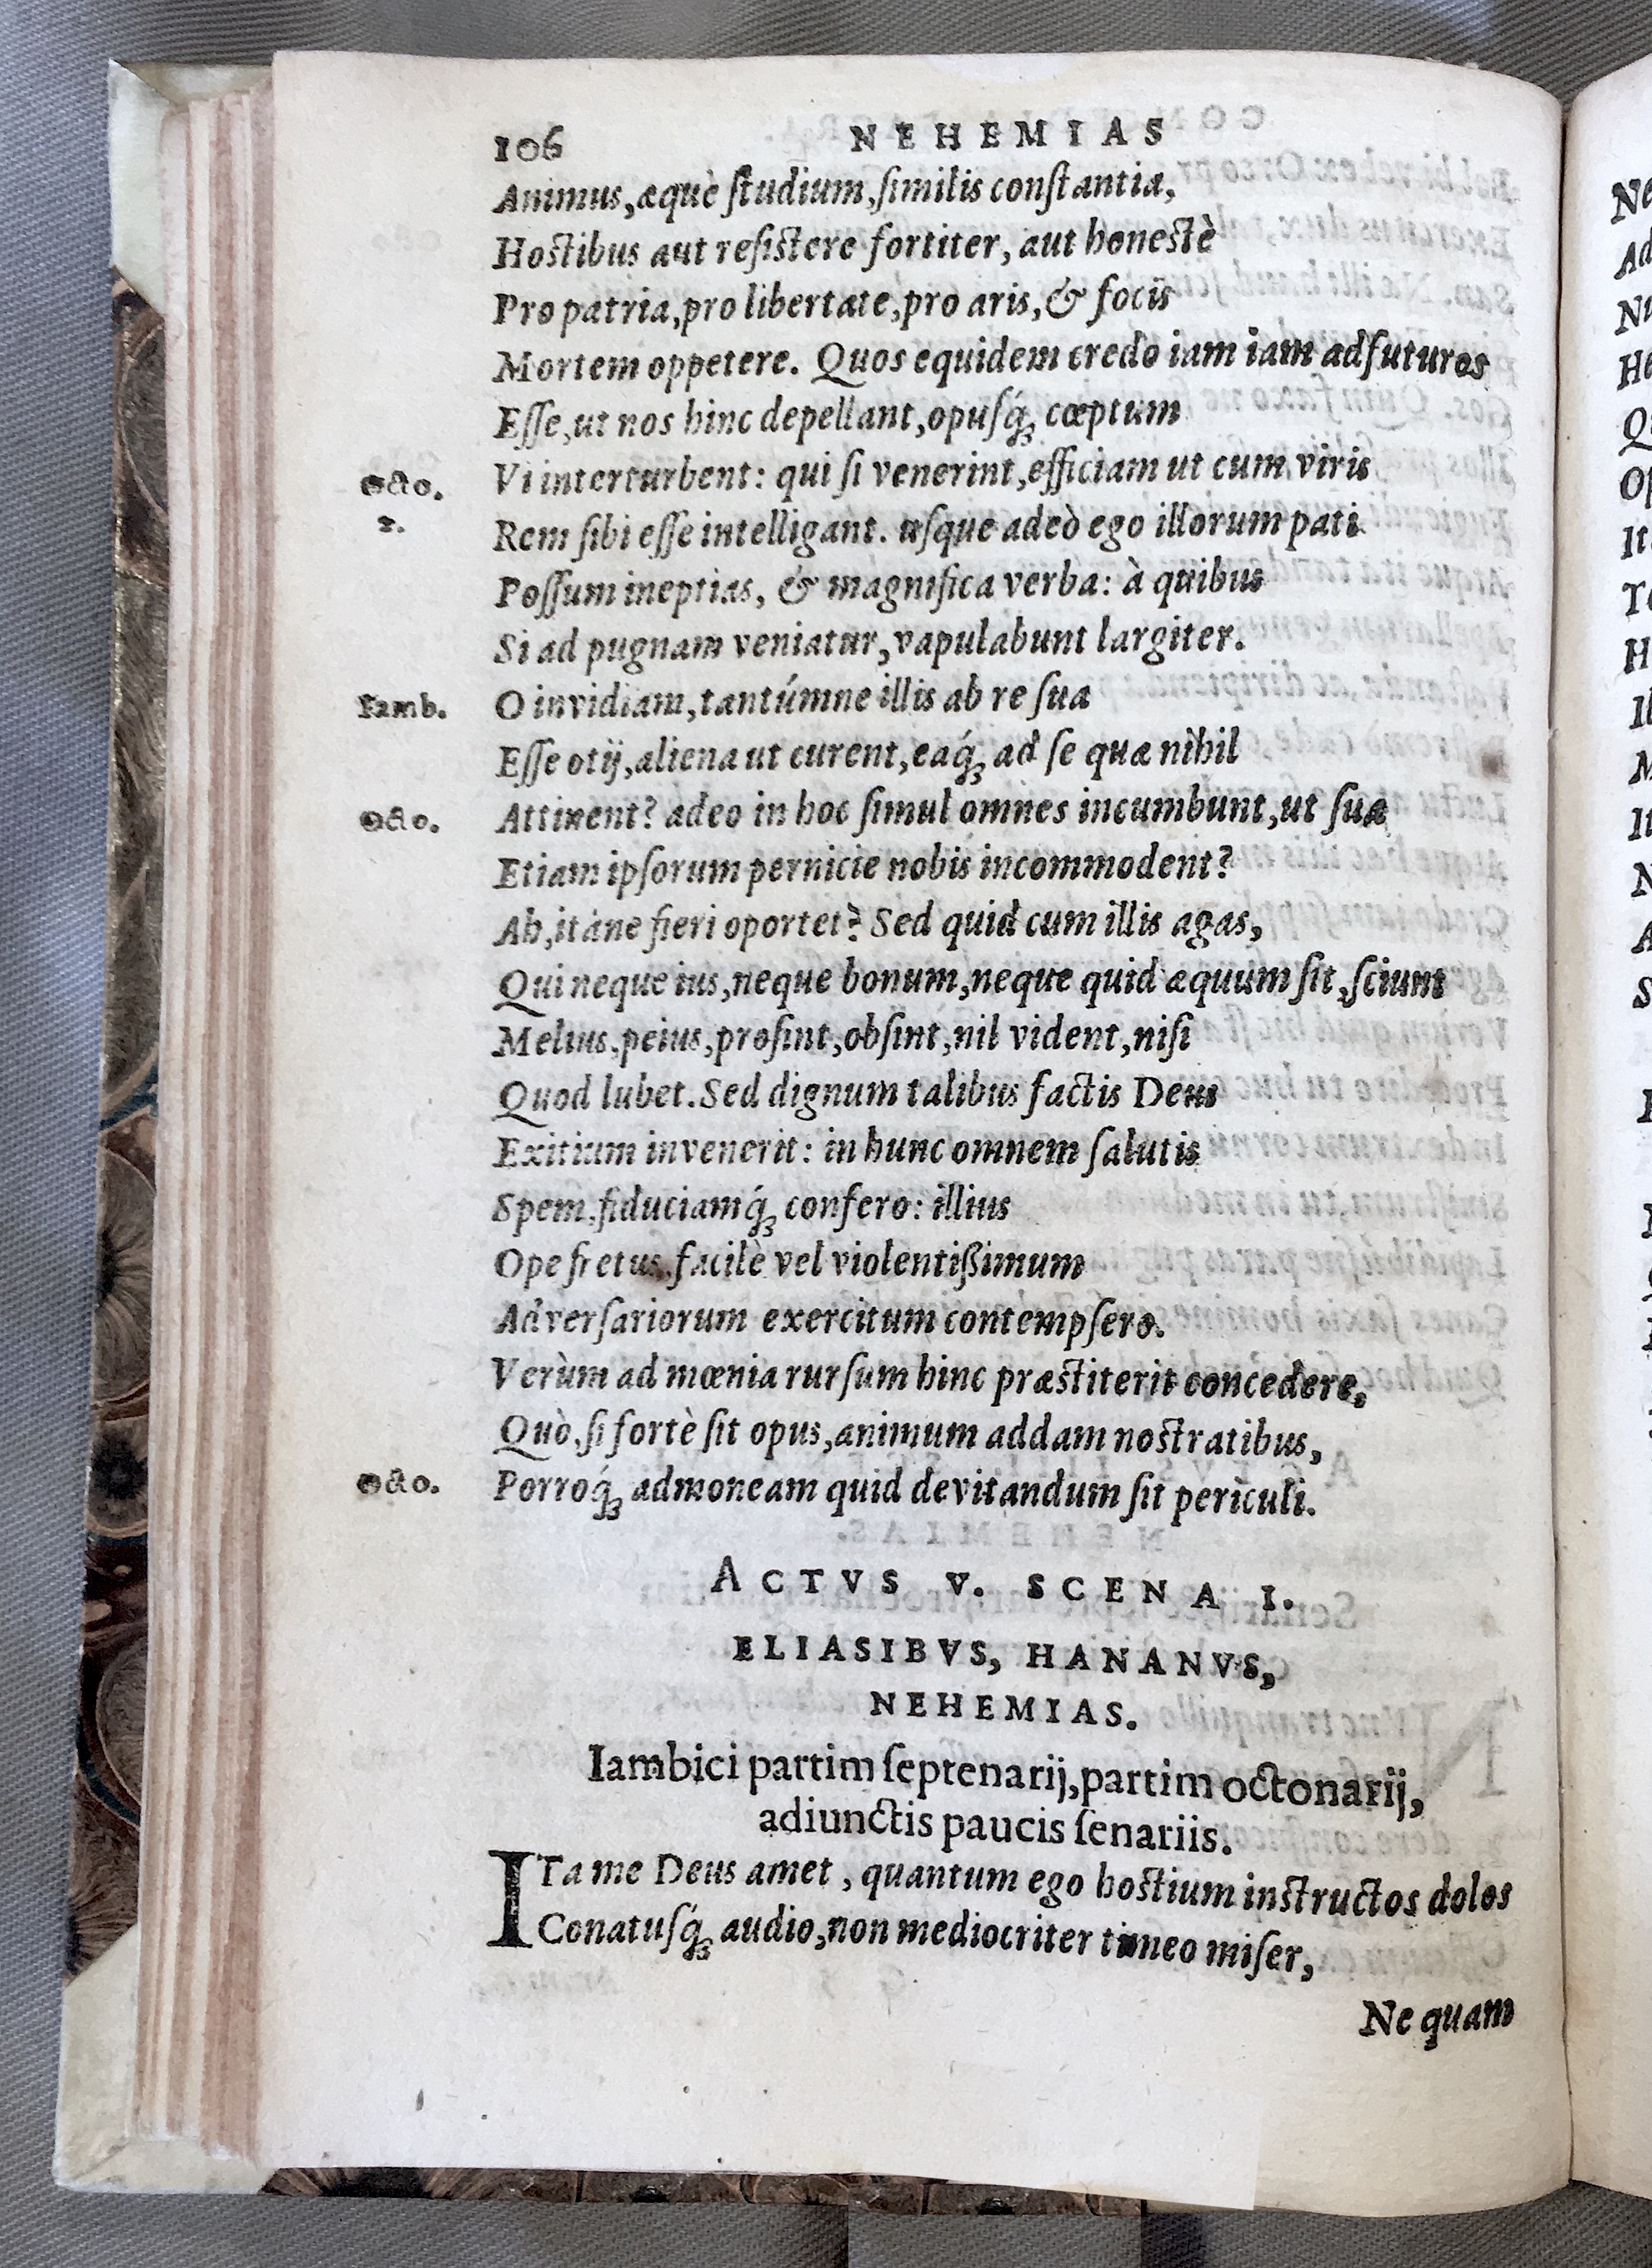 106 NEHEMIAS
Animus, æquè ſtudium, ſimilis conſtantia,
Hoſtibus aut reſiſtere fortiter, aut honeſtè
Pro patria, pro libertate, pro aris, & focis
Mortem oppetere. Quos equidem credo iam iam adfuturos
Eſſe, ut nos hinc depellant, opuſq́ꝫ cœptum
Octo. Vi interturbent: qui ſi venerint, efficiam ut cum viris
2. Rem ſibi eſſe intelligant. uſque adeò ego illorum pati
Poſſum ineptias, & magnifica verba: à quibus
Si ad pugnam veniatur, vapulabunt largiter.
Iamb. O invidiam, tantúmne illis ab re ſua
Eſſe otij, aliena ut curent, eaq́ꝫ ad ſe quæ nihil
Octo. Attinent? adeo in hoc ſimul omnes incumbunt, ut ſua
Etiam ipſorum pernicie nobis incommodent?
Ah, itáne fieri oportet? Sed quid cum illis agas,
Qui neque ius, neque bonum, neque quid æquum ſit, ſciunt
Melius, peius, proſint, obſint, nil vident, niſi
Quod lubet. Sed dignum talibus factis Deus
Exitium invenerit: in hunc omnem ſalutis
Spem, fiduciamq́ꝫ confero: illius
Ope fretus, facilè vel violentißimum
Adverſariorum exercitum contempſero.
Verùm ad mœnia rurſum hinc præſtiterit concedere,
Quò, ſi fortè ſit opus, animum addam noſtratibus,
Octo. Porroq́ꝫ admoneam quid devitandum ſit periculi.
ACTVS V. SCENA I.
ELIASIBVS, HANANVS,
NEHEMIAS.
Iambici partim ſeptenarij, partim octonarij,
adiunctis paucis ſenariis.
ITa me Deus amet, quantum ego hoſtium inſtructos dolos
Conatuſq́ꝫ audio, non mediocriter timeo miſer,
Ne quam